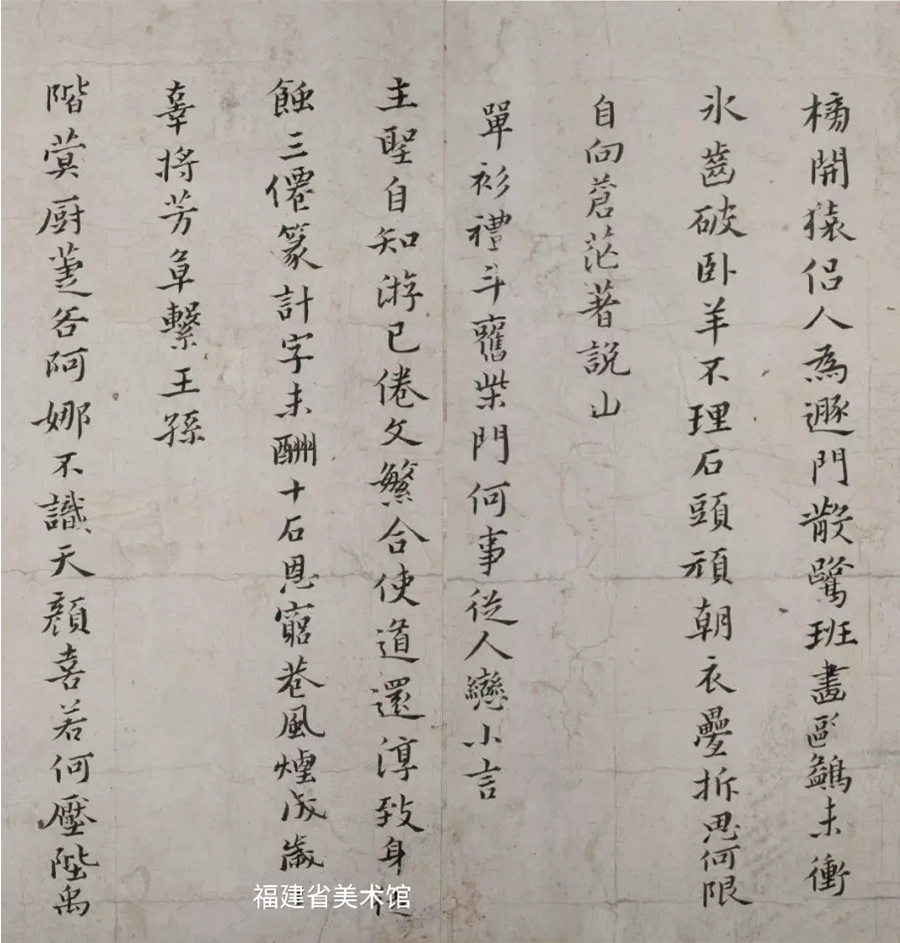 榜開猿侶人為遯門散鷺班畫鷁未衝
氷齒破卧羊不理石頭頑朝衣疊拆思何限
自向蒼茫著說山
單衫禮斗舊柴門何事從人戀小言
主聖自知游已倦文繁合使道還淳致身
蝕三僊篆計字未酬十石恩窮巷風煙成歲
辜將芳草繫王孫
階蓂厨萐答阿娜不識天顏喜若何壓陛禹
福建省美术馆